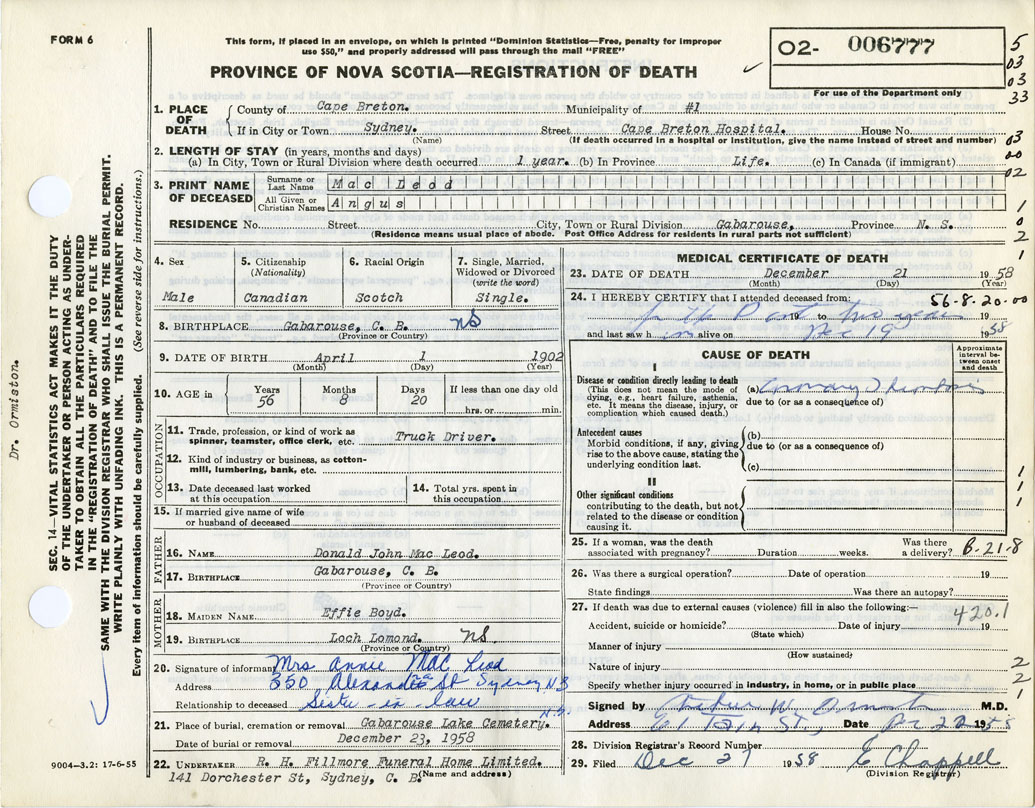 FORM 6
This form, if placed in an envelope, on which is printed "Dominion Statistics—Free, penalty for improper
use $50," and properly addressed will pass through the mail "FREE"
PROVINCE OF NOVA SCOTIA—REGISTRATION OF DEATH
02- 006777
For use of the Department only
5
03
03
33
03
00
02
1
0
2
1
1. PLACE OF DEATH
County of Cape Breton. Municipality of #1
If in City or Town Sydney. Street Cape Breton Hospital. House No.
(Name) (If death occurred in a hospital or institution, give the name instead of street and number)
2. LENGTH OF STAY (in years, months and days)
(a) In City, Town or Rural Division where death occurred 1 year. (b) In Province Life. (c) In Canada (if immigrant)
3. PRINT NAME OF DECEASED
Surname or Last Name Mac Leod
All Given or Christian Names Angus
RESIDENCE No. Street City, Town or Rural Division Gabarouse, Province N. S.
(Residence means usual place of abode. Post Office Address for residents in rural parts not sufficient)
4. Sex
Male
5. Citizenship
(Nationality)
Canadian
6. Racial Origin
Scotch
7. Single, Married,
Widowed or Divorced
(write the word)
Single.
8. BIRTHPLACE Gabarouse, C. B. NS
(Province or Country)
9. DATE OF BIRTH April 1 1902
(Month) (Day) (Year)
10. AGE in
Years
56
Months
8
Days
20
If less than one day old
hrs. or min.
OCCUPATION
11. Trade, profession, or kind of work as
spinner, teamster, office clerk, etc. Truck Driver.
12. Kind of industry or business, as cotton-
mill, lumbering, bank, etc.
13. Date deceased last worked
at this occupation
14. Total yrs. spent in
this occupation
15. If married give name of wife
or husband of deceased
FATHER
16. NAME Donald John Mac Leod.
17. BIRTHPLACE Gabarouse, C. B.
(Province or Country)
MOTHER
18. MAIDEN NAME Effie Boyd.
19. BIRTHPLACE Loch Lomond. NS
(Province or Country)
20. Signature of informant Mrs Annie MAC Leod
Address 350 Alexandra St Sydney N.S
Relationship to deceased Sister-in law
N.S.
21. Place of burial, cremation or removal Gabarouse Lake Cemetery.
Date of burial or removal December 23, 1958
22. UNDERTAKER R. H. Fillmore Funeral Home Limited.
141 Dorchester St, Sydney, C. B.
(Name and address)
MEDICAL CERTIFICATE OF DEATH
23. DATE OF DEATH December 21 1958
(Month) (Day)
24. I HEREBY CERTIFY that I attended deceased from:
56-8.20-00
for the Past 19 to two years 19
and last saw him alive on Dec 19 1958
CAUSE OF DEATH
Approximate
interval be-
tween onset
and death
I
Disease or condition directly leading to death
(This does not mean the mode of
dying, e.g., heart failure, asthenia,
etc. It means the disease, injury, or
complication which caused death.)
(a) Coronary Thrombosis
due to (or as a consequence of)
Antecedent causes
Morbid conditions, if any, giving
rise to the above cause, stating the
underlying condition last.
(b)
due to (or as a consequence of)
(c)
II
Other significant conditions
contributing to the death, but not
related to the disease or condition
causing it.
1
1
1
25. If a woman, was the death
associated with pregnancy? Duration weeks. Was there
a delivery? B-21-8
26. Was there a surgical operation? Date of operation 19
State findings Was there an autopsy?
27. If death was due to external causes (violence) fill in also the following:— 420.1
Accident, suicide or homicide? Date of injury 19
(State which)
Manner of injury
(How sustained)
Nature of injury
Specify whether injury occurred in industry, in home, or in public place
2
2
1
Signed by Arthur W Ormiston M.D.
Address 61 St., Date Dec 22 1958
28. Division Registrar's Record Number
29. Filed Dec 27 1958 E Chappell
(Division Registrar)
Dr. Ormiston.
SEC. 14—VITAL STATISTICS ACT MAKES IT THE DUTY
OF THE UNDERTAKER OR PERSON ACTING AS UNDER-
TAKER TO OBTAIN ALL THE PARTICULARS REQUIRED
IN THE "REGISTRATION OF DEATH" AND TO FILE THE
SAME WITH THE DIVISION REGISTRAR WHO SHALL ISSUE THE BURIAL PERMIT.
WRITE PLAINLY WITH UNFADING INK. THIS IS A PERMANENT RECORD.
Every item of information should be carefully supplied. (See reverse side for instructions.)
9004—3.2: 17-6-55